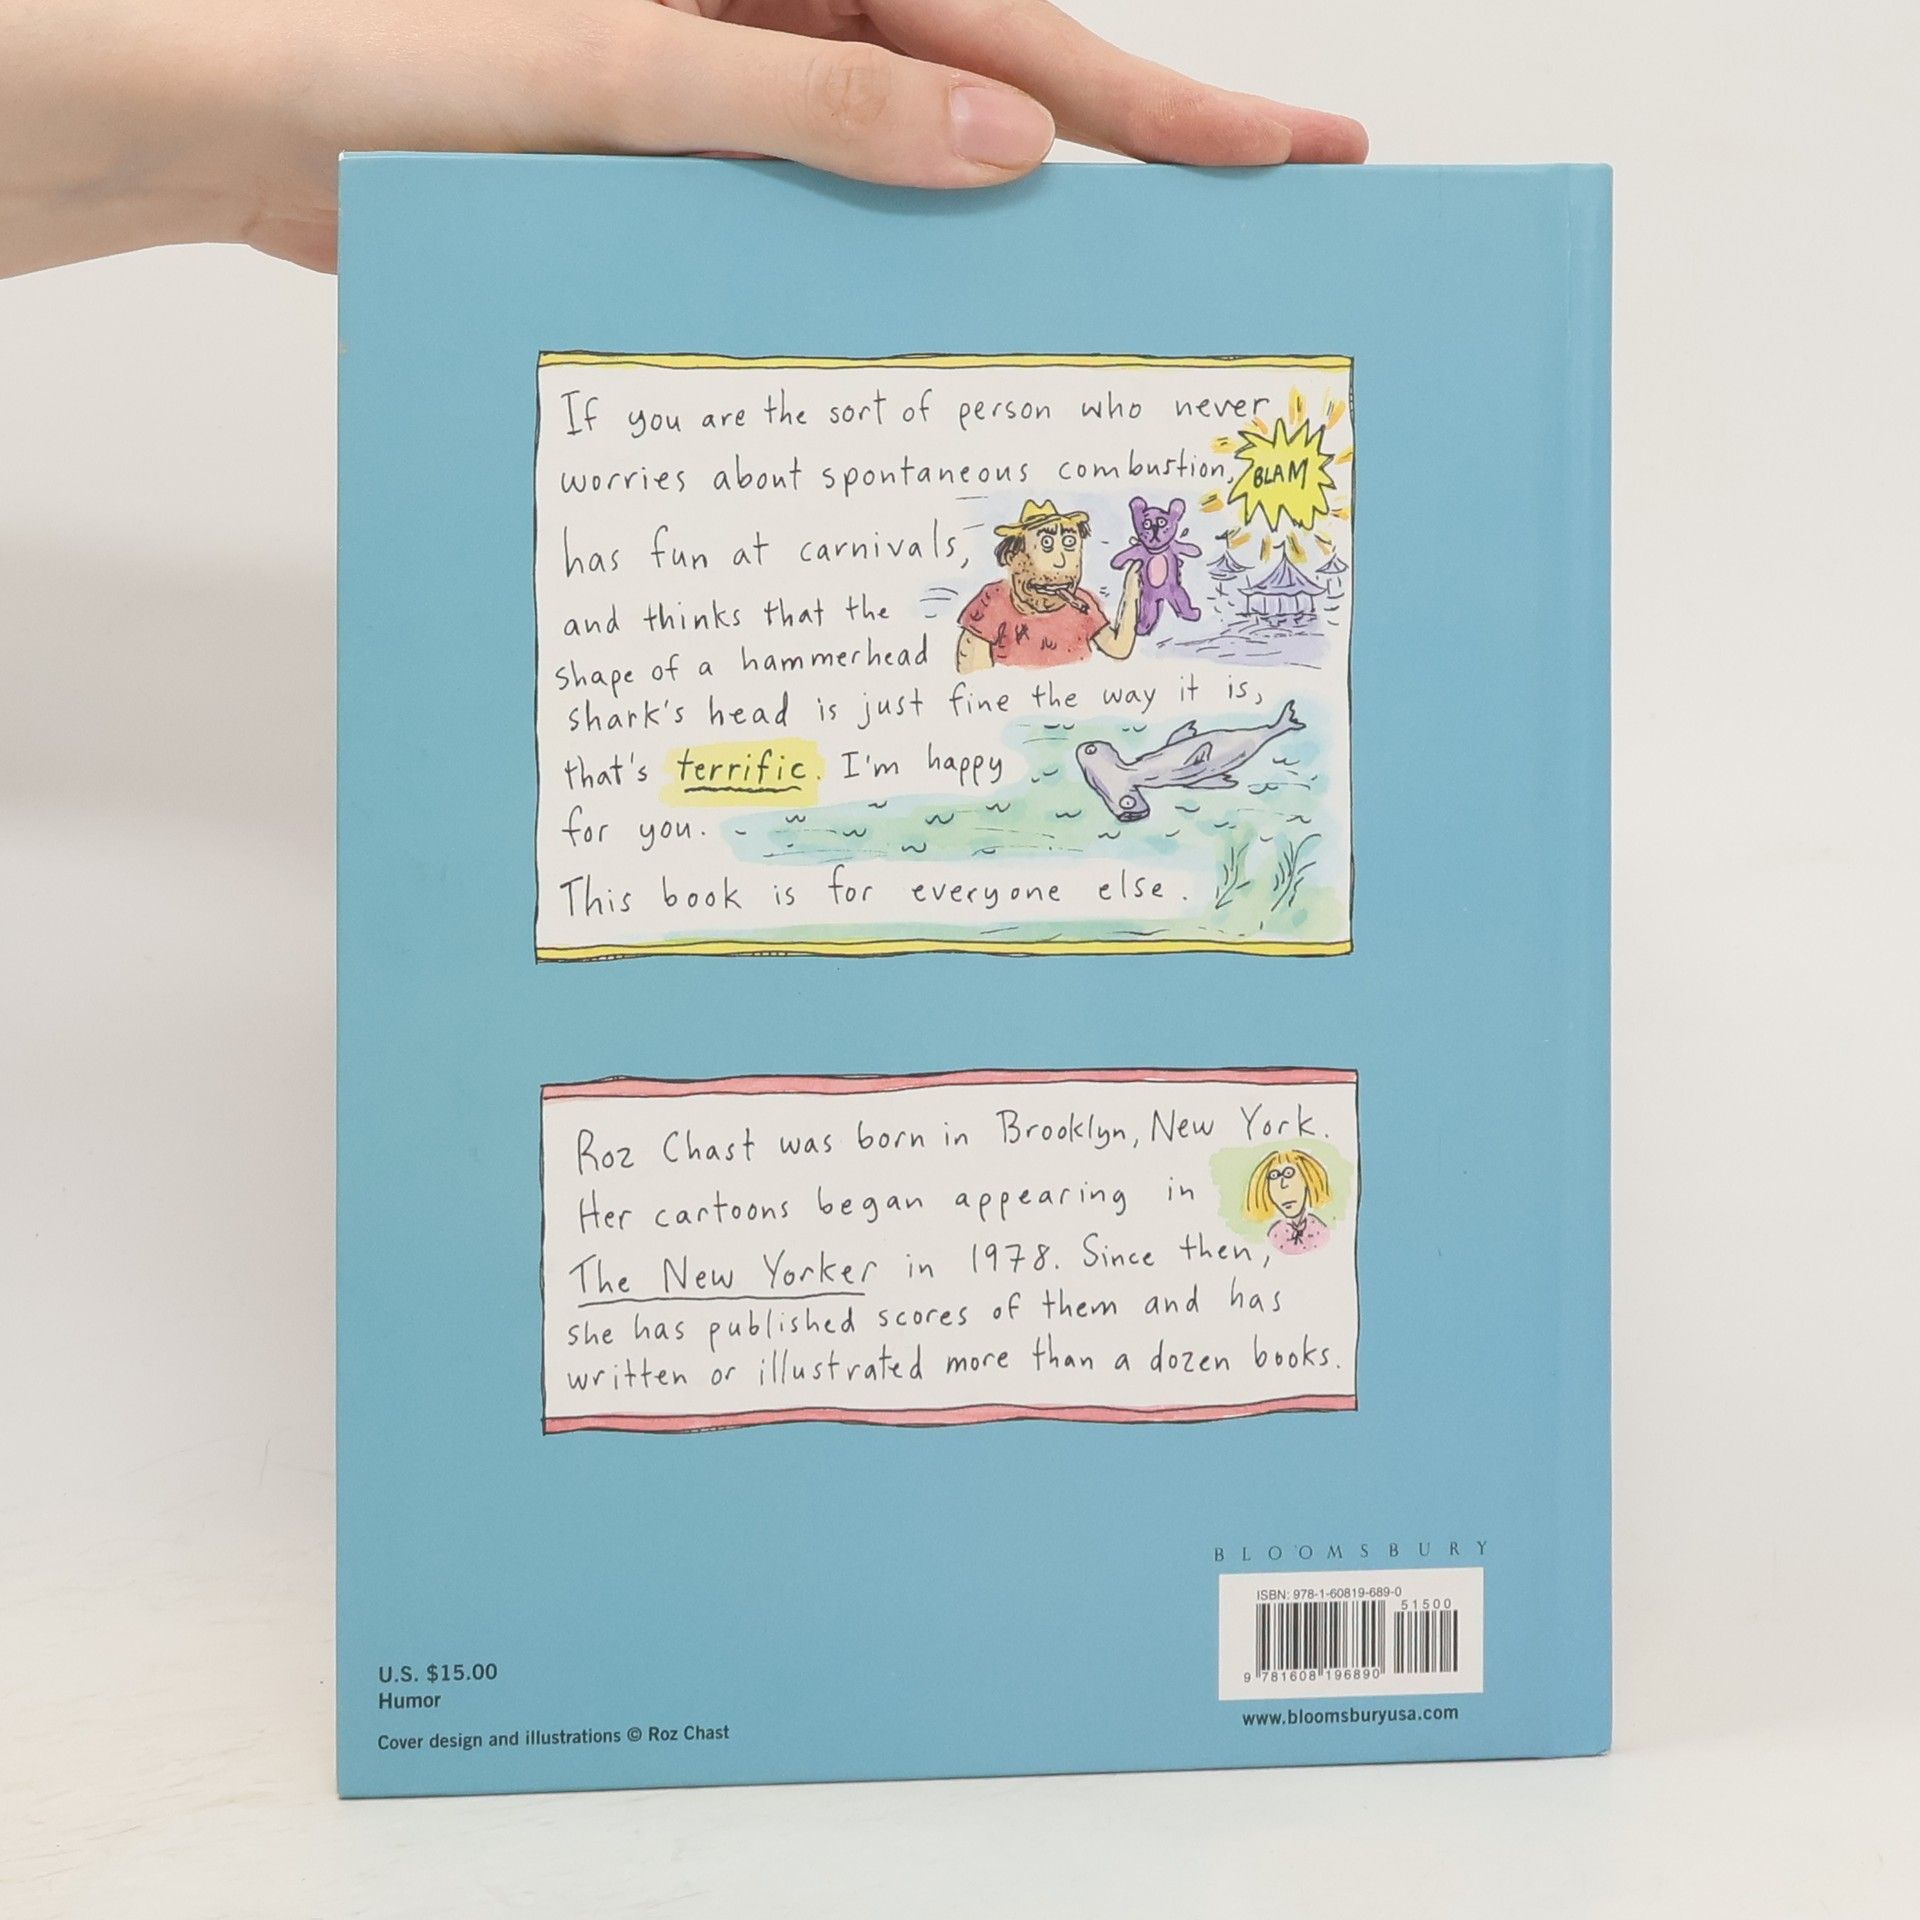 If you are the sort of person who never
worries about spontaneous combustion,
BLAM
has fun at carnivals,
and thinks that the
shape of a hammerhead
shark's head is just fine the way it is,
that's terrific. I'm happy
for you.
This book is for everyone else.
Roz Chast was born in Brooklyn, New York.
Her cartoons began appearing in
The New Yorker in 1978. Since then,
she has published scores of them and has
written or illustrated more than a dozen books.
BLOOMSBURY
ISBN: 978-1-60819-689-0
51500
9 781608 196890
www.bloomsburyusa.com
U.S. $15.00
Humor
Cover design and illustrations © Roz Chast